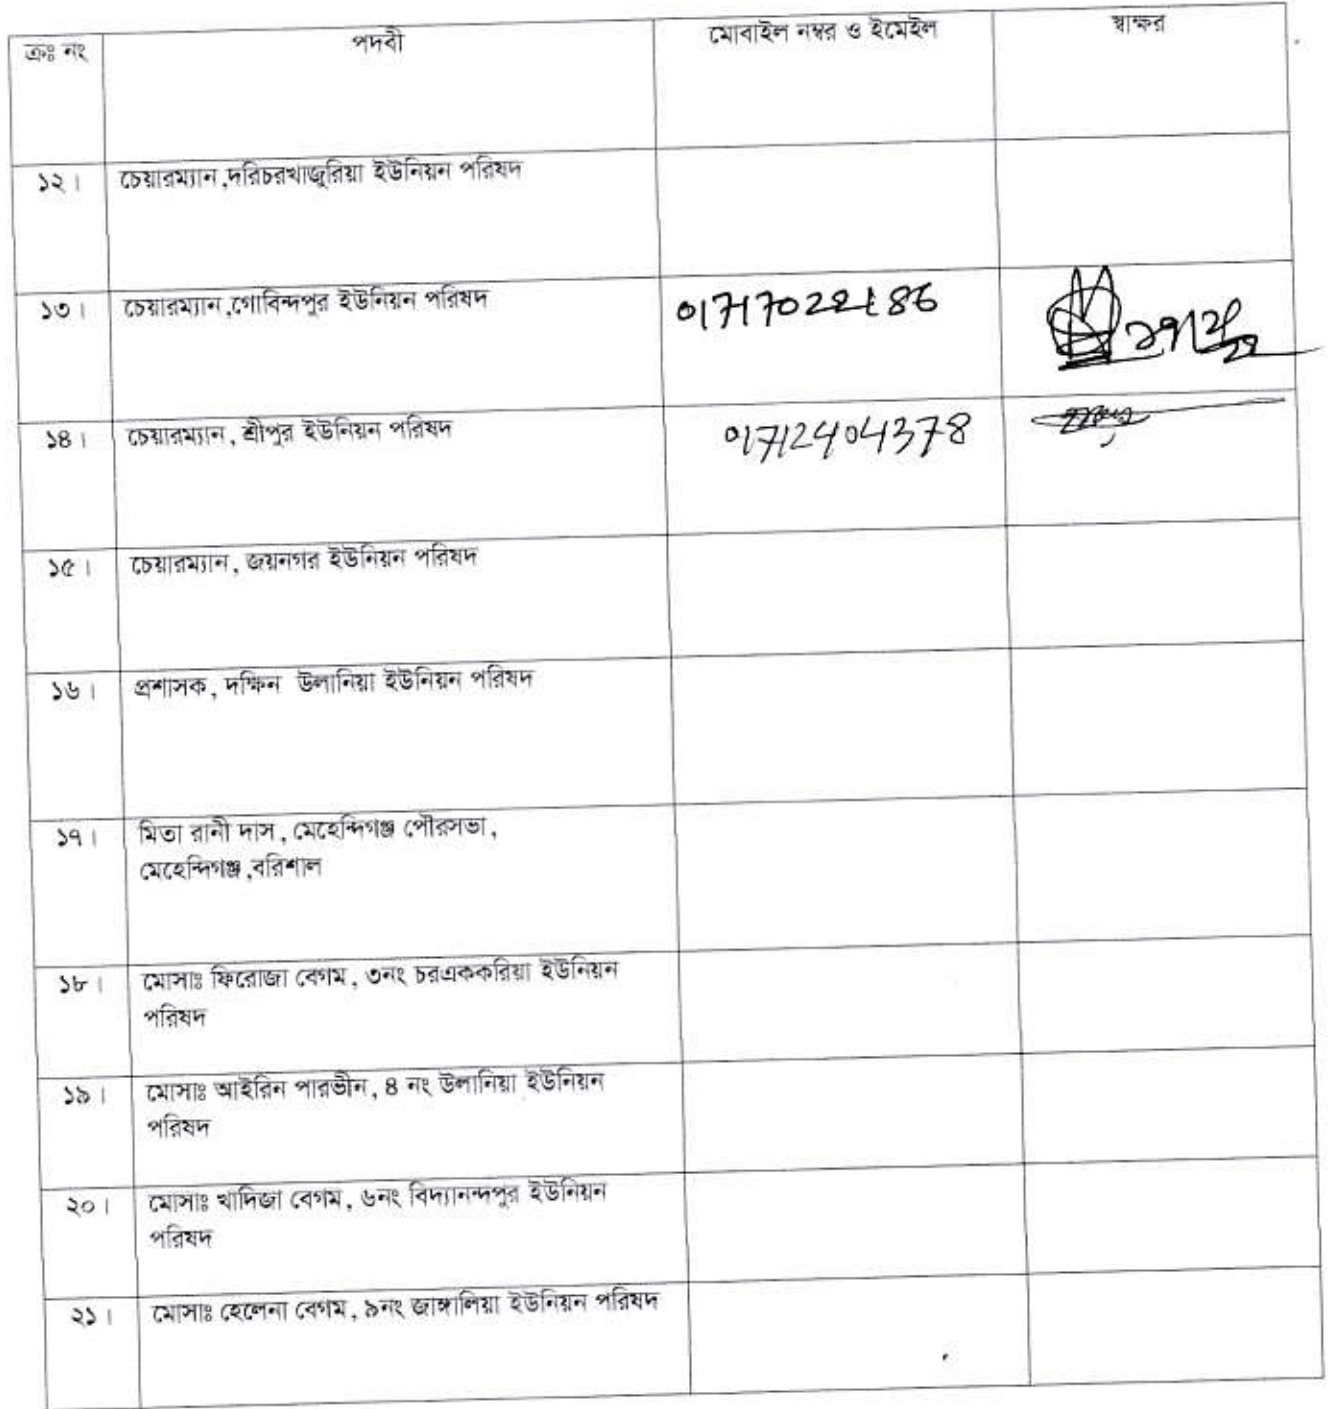 ক্রঃ নং পদবী মোবাইল নম্বর ও ইমেইল স্বাক্ষর
১২। চেয়ারম্যান,দরিচরখাজুরিয়া ইউনিয়ন পরিষদ
১৩। চেয়ারম্যান,গোবিন্দপুর ইউনিয়ন পরিষদ 01717022186
১৪। চেয়ারম্যান, শ্রীপুর ইউনিয়ন পরিষদ 01712404378
১৫। চেয়ারম্যান, জয়নগর ইউনিয়ন পরিষদ
১৬। প্রশাসক, দক্ষিন উলানিয়া ইউনিয়ন পরিষদ
১৭। মিতা রানী দাস, মেহেন্দিগঞ্জ পৌরসভা,
মেহেন্দিগঞ্জ,বরিশাল
১৮। মোসাঃ ফিরোজা বেগম, ৩নং চরএককরিয়া ইউনিয়ন
পরিষদ
১৯। মোসাঃ আইরিন পারভীন, ৪ নং উলানিয়া ইউনিয়ন
পরিষদ
২০। মোসাঃ খাদিজা বেগম, ৬নং বিদ্যানন্দপুর ইউনিয়ন
পরিষদ
২১। মোসাঃ হেলেনা বেগম, ৯নং জাঙ্গালিয়া ইউনিয়ন পরিষদ